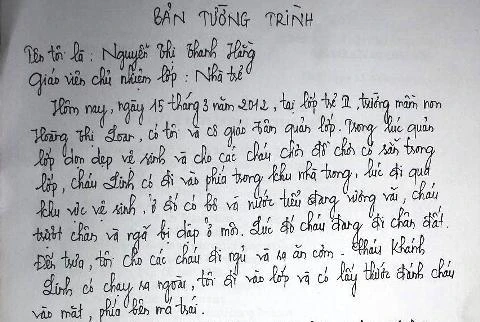 BẢN TƯỜNG TRÌNH
Tên tôi là : Nguyễn Thị Thanh Hằng
Giáo viên chủ nhiệm lớp : Nhà trẻ
Hôm nay, ngày 15 tháng 3 năm 2012, tại lớp trẻ II, trường mầm non
Hoàng Thị Loan, có tôi và cô giáo Vân quản lớp. Trong lúc quản
lớp dọn dẹp vệ sinh và cho các cháu chơi đồ chơi có sẵn trong
lớp, cháu Linh có đi vào phía trong khu nhà trong, lúc đi qua
khu vực vệ sinh, ở đó có bô và nước tiểu đang vương vãi, cháu
trượt chân và ngã bị dập ở môi. Lúc đó cháu đang đi chân đất.
Đến trưa, tôi cho các cháu đi ngủ và ra ăn cơm. Cháu Khánh
Linh có chạy ra ngoài, tôi đi vào lớp và có lấy thước đánh cháu
vào mặt, phía bên má trái.